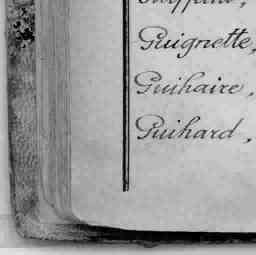 Guignette,
Guihaire,
Guihard,